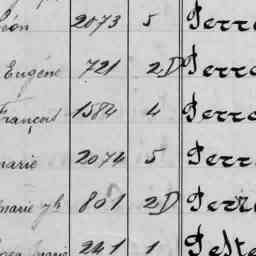 Léon 2073 5 Perr
Eugène 721 2.D Perr
François 1584 4 Perr
marie 2074 5 Perr
marie yh 801 2.D Perr
marie 241 1 Pelte